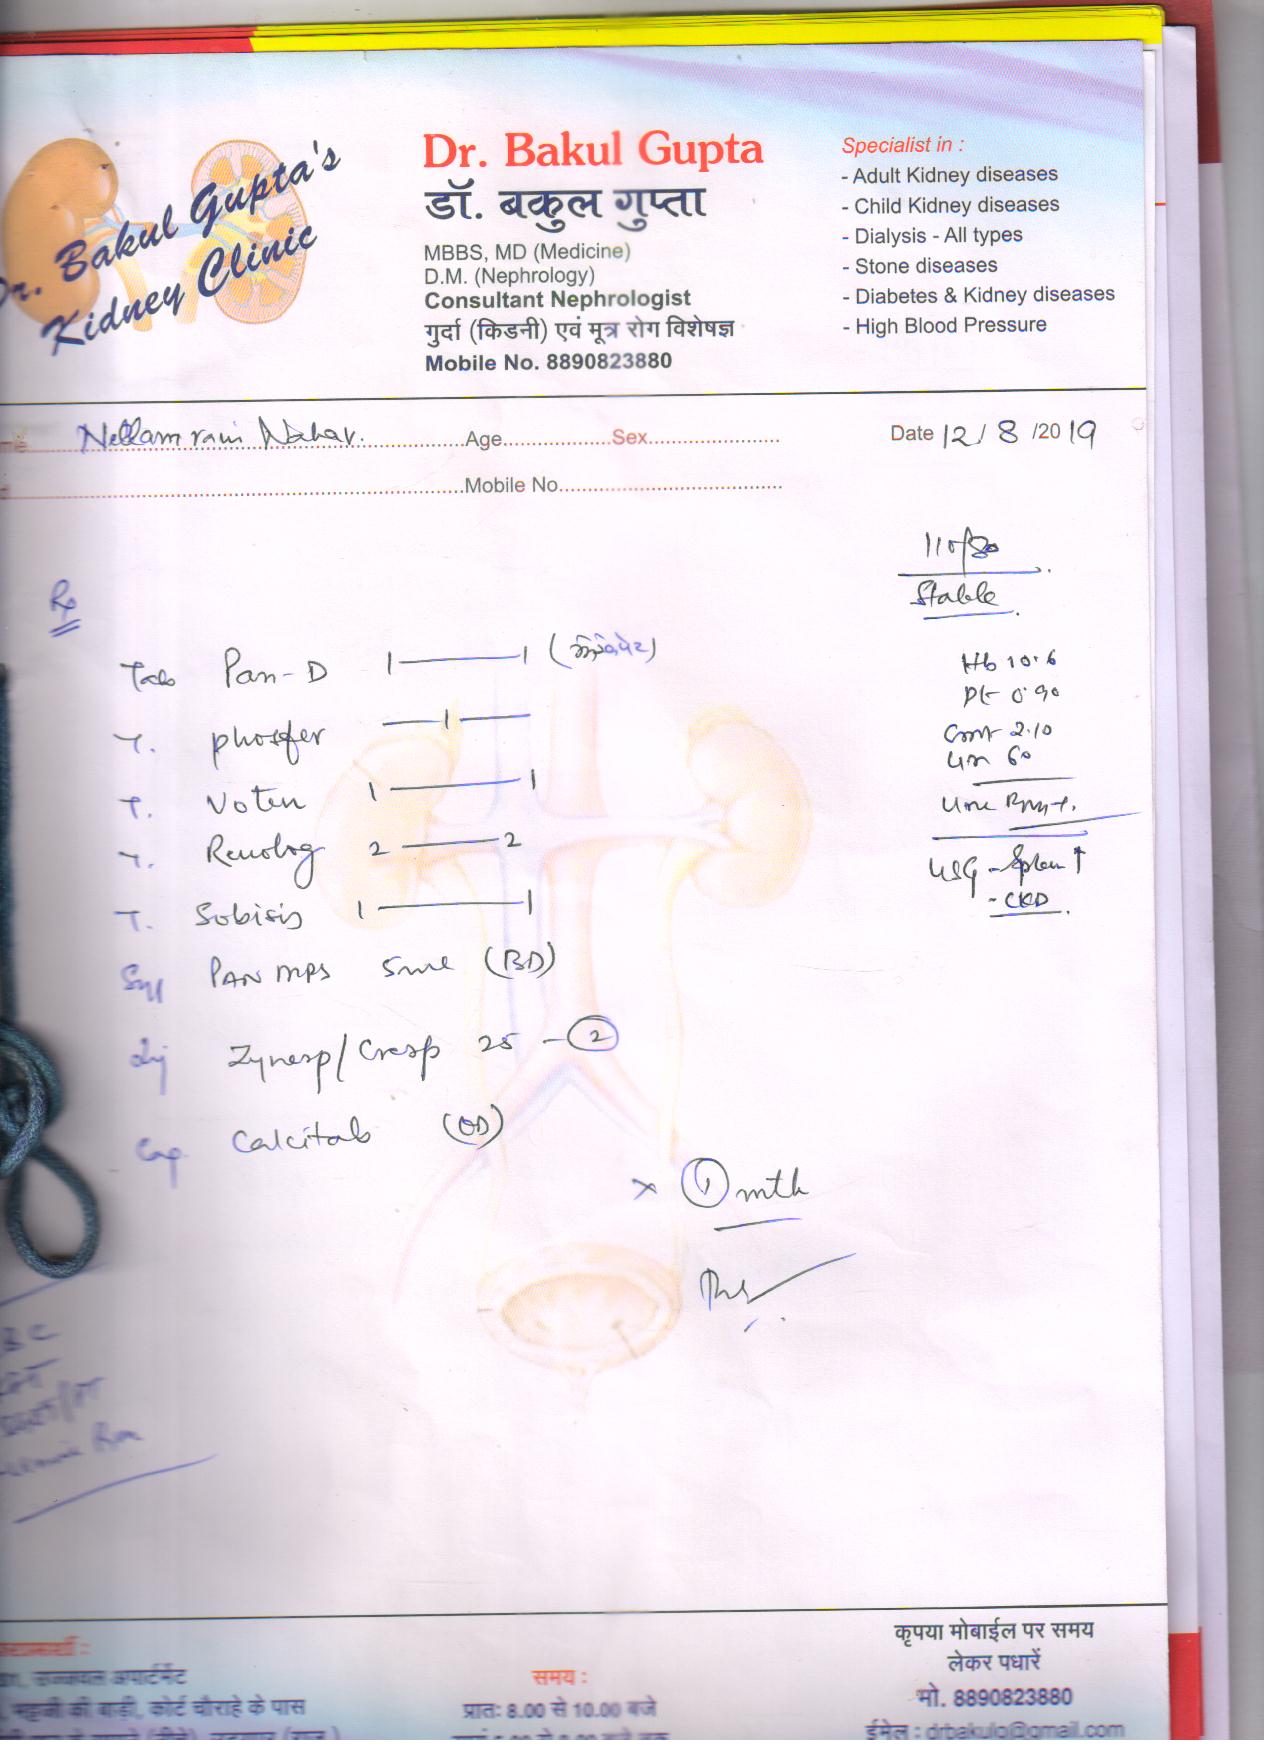 Dr. Bakul Gupta's
Kidney Clinic
Dr. Bakul Gupta
डॉ. बकुल गुप्ता
MBBS, MD (Medicine)
D.M. (Nephrology)
Consultant Nephrologist
गुर्दा (किडनी) एवं मूत्र रोग विशेषज्ञ
Mobile No. 8890823880
Specialist in :
- Adult Kidney diseases
- Child Kidney diseases
- Dialysis - All types
- Stone diseases
- Diabetes & Kidney diseases
- High Blood Pressure
Nahar Age Sex Date 12/8/2019
Mobile No.
110/80
Stable
Rx
Tab Pan-D 1——1
T. phosfer —1—
T. Voten 1——1
T. Renolog 2——2
T. Sobisis 1——1
Syp PAN MPS 5ml (BD)
Inj Zynesp/Cresp 25 - 2
Cap. Calcitab (OD)
x 1 mth
Hb 10.6
0.90
2.10
60
USG - Spleen ↑
- CKD
सज्जवल अपार्टमेंट
भट्टजी की बाड़ी, कोर्ट चौराहे के पास
समय :
प्रातः 8.00 से 10.00 बजे
कृपया मोबाईल पर समय
लेकर पधारें
मो. 8890823880
ईमेल : drbakulg@gmail.com